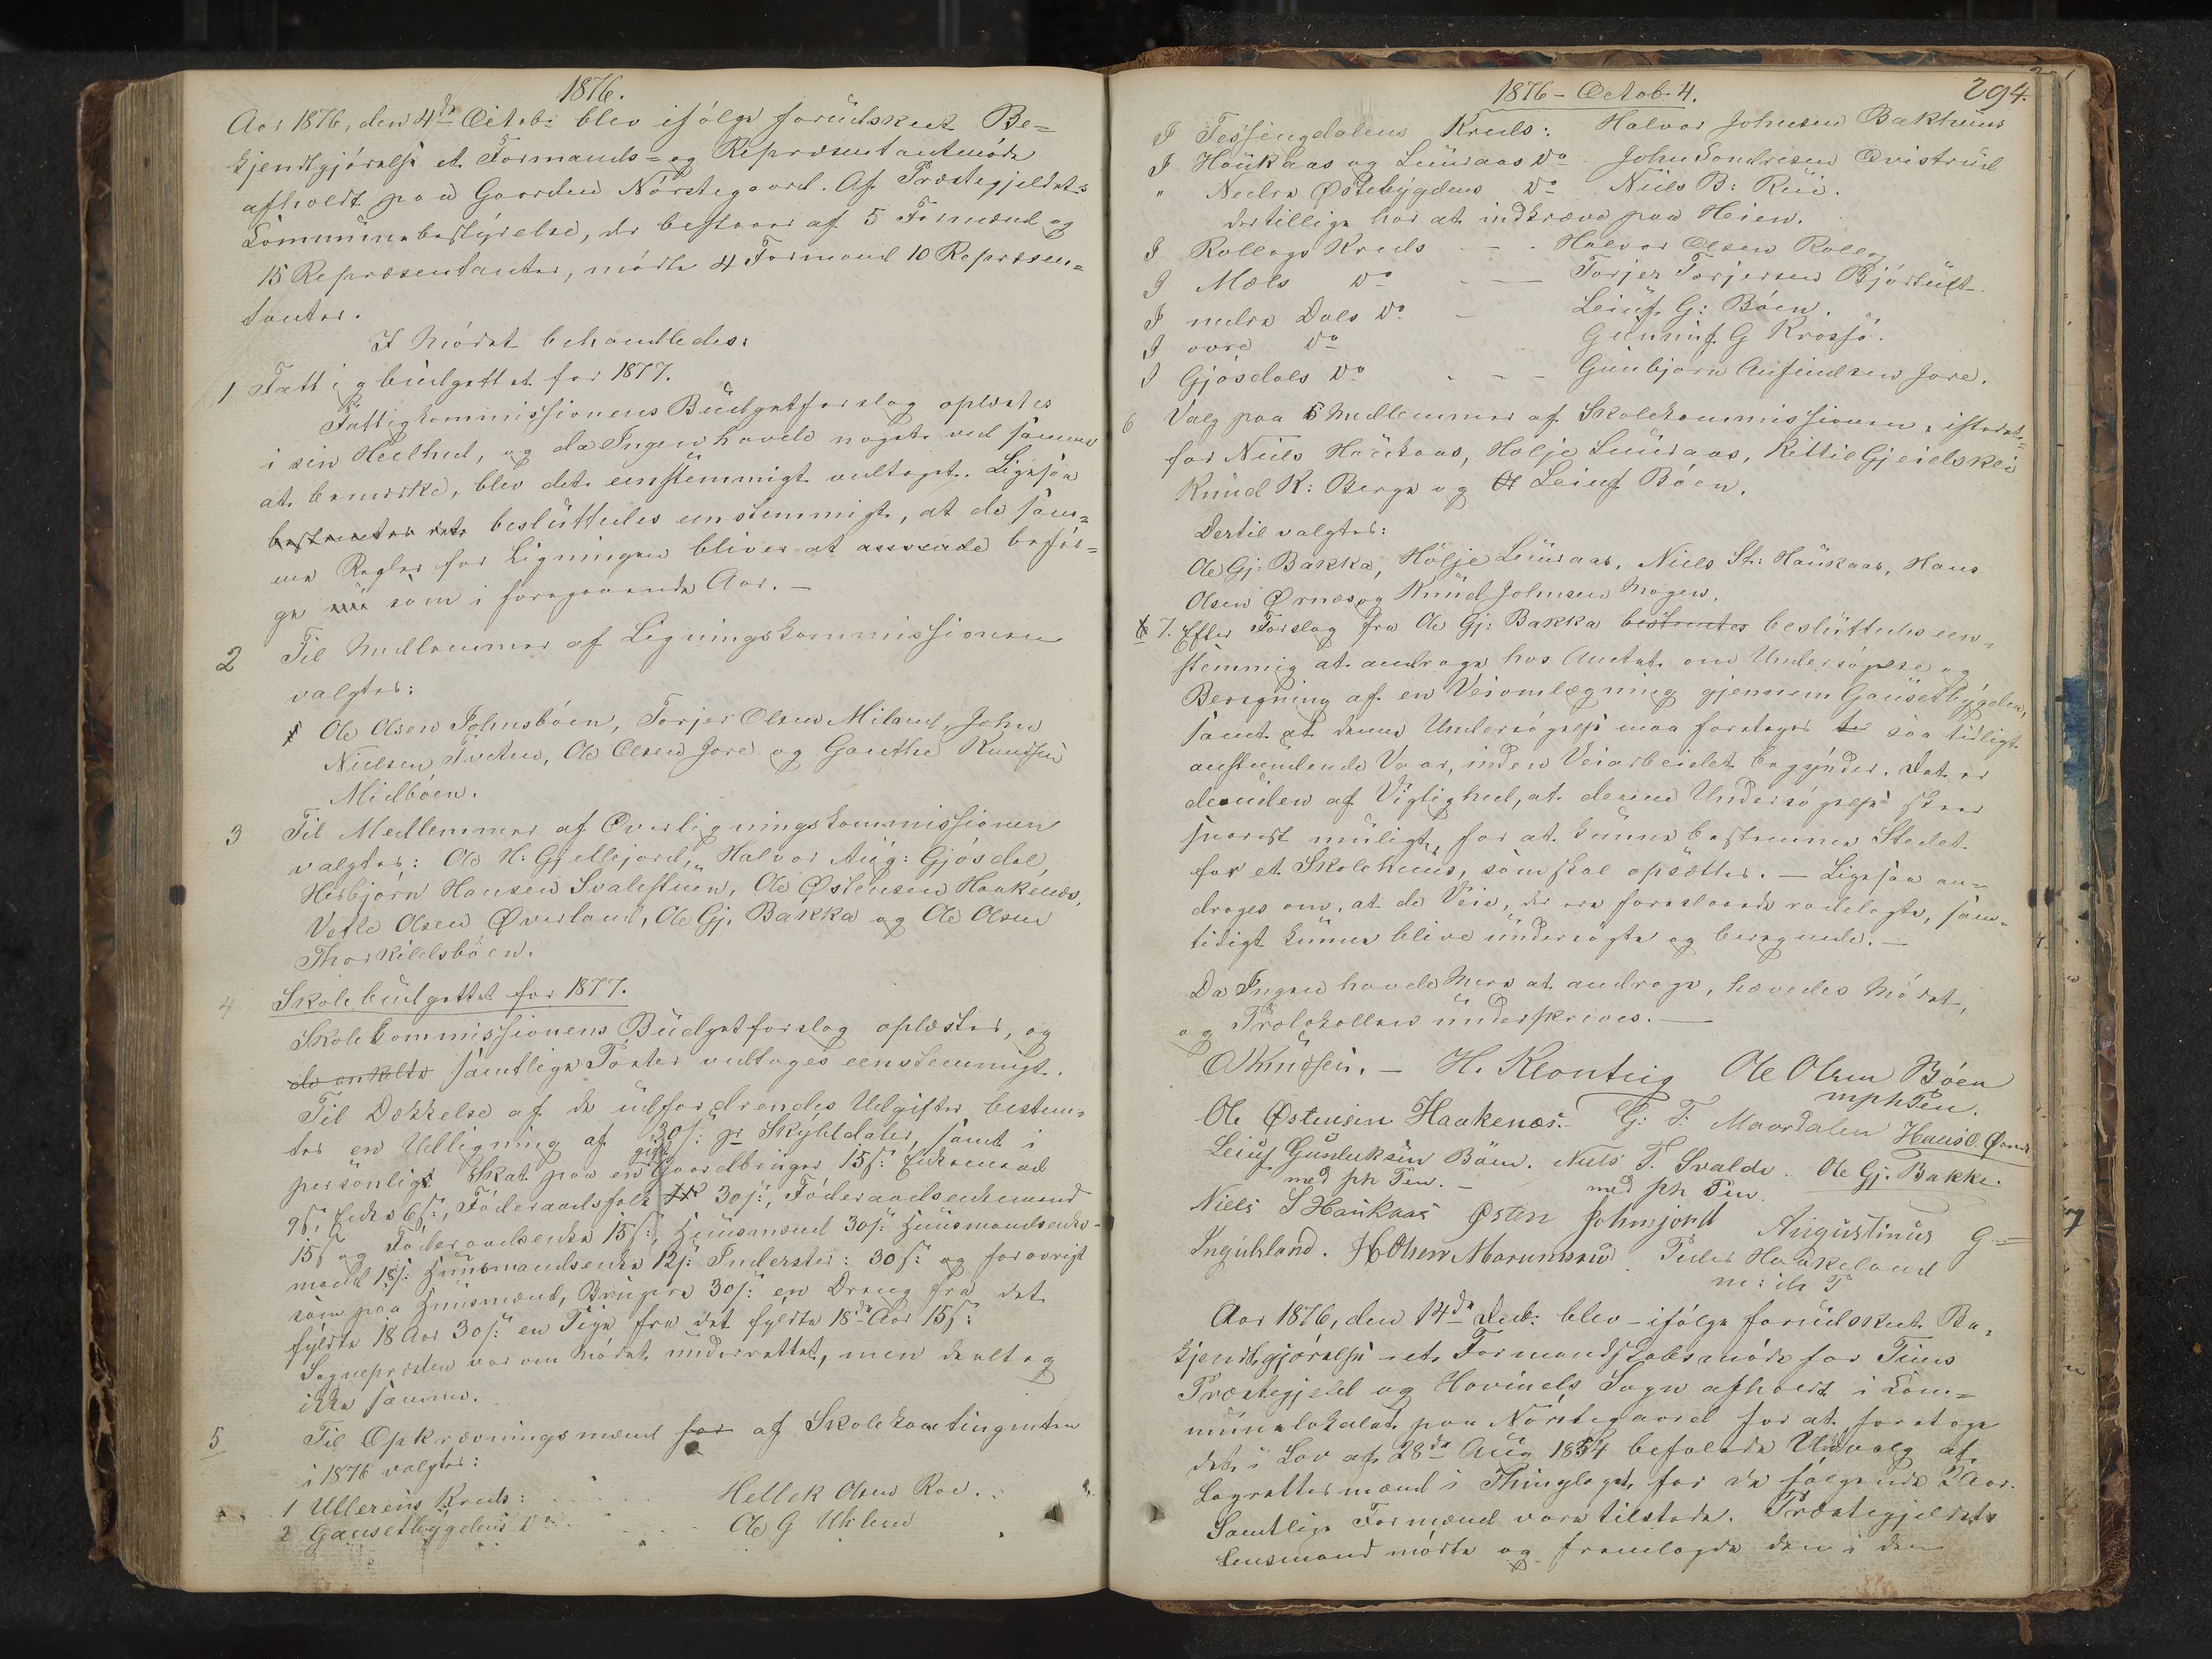 1876.
Aar 1876, den 4de Octob: blev ifölge forudskeet Be=
kjendtgjörelse et Formands= og Repræsentantmöde
afholdt paa Gaarden Nörstegaard. Af Præstegjeldets
Communebestyrelse, der bestaar af 5 Formænd og
15 Repræsentanter, mödte 4 Formænd 10 Repræsen=
tanter.
I Mödet behandledes:
1 Fattigbudgettet for 1877.
Fattigkommissionens Budgetforslag oplæstes
i sin Heelhed, og da Ingen havde noget ved samme
at bemærke, blev det eenstemmigt vedtaget. Ligesaa
bestemtes det besluttedes eenstemmigt, at de sam=
me Regler for Ligningen bliver at anvende befös=
ge som i foregaaende Aar. —
2 Til Medlemmer af Ligningskommissionen
valgtes:
Ole Olsen Johnsböen, Torjer Olsen Miland, John
Nielsen Tveten, Ole Olsen Jore og Gauthe Knudsen
Midböen.
3 Til Medlemmer af Overligningskommissionen
valgtes: Ole H. Gjellejord, Halvor Aug: Gjösdal,
Herbjörn Hansen Svalestuen, Ole Østensen Haakenæs,
Vetle Olsen Øverland, Ole Gj. Bakka og Ole Olsen
Thorkildsböen.
4 Skolebudgettet for 1877.
Skolekommissionens Budgetforslag oplæstes, og
de enkelte samtlige Poster vedtoges eenstemmigt.
Til Dækkelse af de udfordrendes Udgifter bestem=
tes en Udligning af 30 s: pr Skylddaler, samt i
personlig Skat paa en gift Gaardbruger 15 s: Enkemand
9 s, Enke 6 s:, Föderaadsfolk 30 s:, Föderaadsenkemand
15 s og Föderaadsenke 15 s:, Huusmænd 30 s: Huusmandsenke=
mænd 15 s: Huusmandsenke 12 s: Inderster: 30 s: og forövrigt
som paa Huusmænd, 30 s: en Dreng fra det
fyldte 18 Aar 30 s: en Pige fra det fyldte 18de Aar 15 s:
Sognepræsten var om Mödet underrettet, men deeltog
ikke samme.
5 Til Opkrævningsmænd for af Skolekontingenten
i 1876 valgtes:
1 Ullerens Kreds: Hellek Olsen Roe.
2 Gausetbygdens Do Ole G

1876 – Octob. 4. 294.
I Tessungdalens Kreds: Halvor Johnsen Bakhuus
I Haukaas og Luuraas Do John Sondresen Qvistrud
" Nedre Østebygdens Do Niels B: Rui.
der tillige har at indkræve paa Heien.
I Rollags Kreds — . Halvor Olsen Rollag
I Mæls Do — Torjer Torjersen Björtuft
I nedre Dals Do — Leiuf G: Böen.
I övre Do Gunnuf G Krossö.
I Gjösdals Do - - — Gunbjörn Anfindsen Jore.
6 Valg paa 5 Medlemmer af Skolekommissionen, istedet=
for Niels Haukaas, Hölje Luuraas, Kittil Gjeidskei
Knud K: Berge og Leiuf Böen.
Dertil valgtes:
Ole Gj: Bakka, Hölje Luuraas, Niels St: Haukaas, Hans
Olsen Ørnæs og Knud Johnsen Mogen.
7. Efter Forslag fra Ole Gj: Bakka bestemtes besluttedes een=
stemmig at andrage hos Amtet om Undersögelse og
Beregning af en Veiomlægning gjennem Gausetbygden,
samt at denne Undersögelse maa foretages saa tidligt
anstundende Vaar, inden Veiarbeidet begynder. Det er
desuden af Vigtighed, at denne Undersögelse skeer
snarest muligt, for at kunne bestemme Stedet
for et Skolehuus, som skal opsættes. — Ligesaa an=
drages om, at de Veie, der ere foreslaaede rodelagte, sam=
tidigt kunne blive undersögte og beregnede. —
Da Ingen havde Mere at andrage, hævedes Mödet,
og Protokollen underskreves. —
O Knudsen. — H. Klonteig Ole Olsen Böen
mphPen.
Ole Østensen Haakenæs. G. T. Maardalen Hans O. Ørnæs
Leiuf Gunleiksen Böen. Niels T. Svalde. Ole Gj. Bakke.
med ph Pen. — med ph Pen
Niels S Haukaas Østen Johnsjord Augustinus G=
Ingulsland. H Olsen Marumsrud. Peder Haakeland
m: ih P
Aar 1876, den 14de Decb: blev – ifölge forudskeet Be=
kjendtgjörelse – et Formandskabsmöde for Tinns
Præstegjeld og Hovinds Sogn afholdt i Com=
munelokalet paa Nörstegaard for at foretage
det i Lov af 28de Aug 1854 befalede Udvalg af
Lagrettesmænd i Thinglaget for de fölgende 2 Aar.
Samtlige Formænd vare tilstede. Præstegjeldets
Lensmand mödte og fremlagde den i den